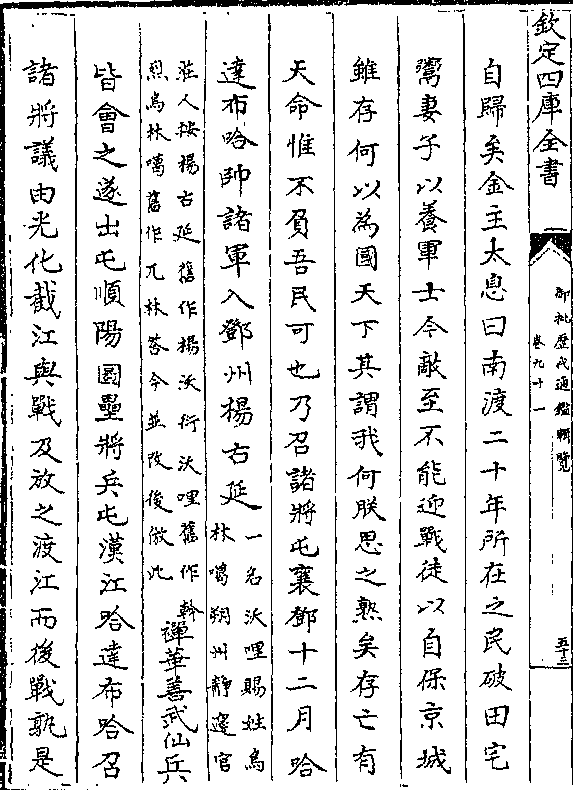 欽定四庫全書
御批歷代通鑑輯覽
卷九十一
五十三
自歸矣金主太息曰南渡二十年所在之民破田宅
鬻妻子以養軍士今敵至不能迎戰徒以自保京城
雖存何以為國天下其謂我何朕思之熟矣存亡有
天命惟不負吾民可也乃召諸將屯襄鄧十二月哈
達布哈帥諸軍入鄧州楊右延
一名沃哩賜姓烏
林噶朔州靜邊官
莊人按楊右延舊作楊沃衍沃哩舊作斡
烈烏林噶舊作兀林荅今並改後倣此
禪華善武仙兵
皆會之遂出屯順陽圖壘將兵屯漢江哈達布哈召
諸將議由光化截江與戰及放之渡江而後戰孰是